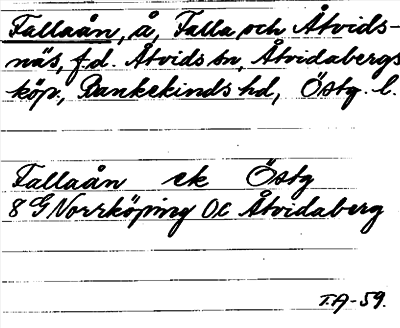 Fallaån, å, Falla och Åtvids-
näs, f.d. Åtvids sn, Åtvidabergs
köp., Bankekinds hd, Östg. l.
Fallaån ek Östg
8 G Norrköping OC Åtvidaberg
T.A-59.